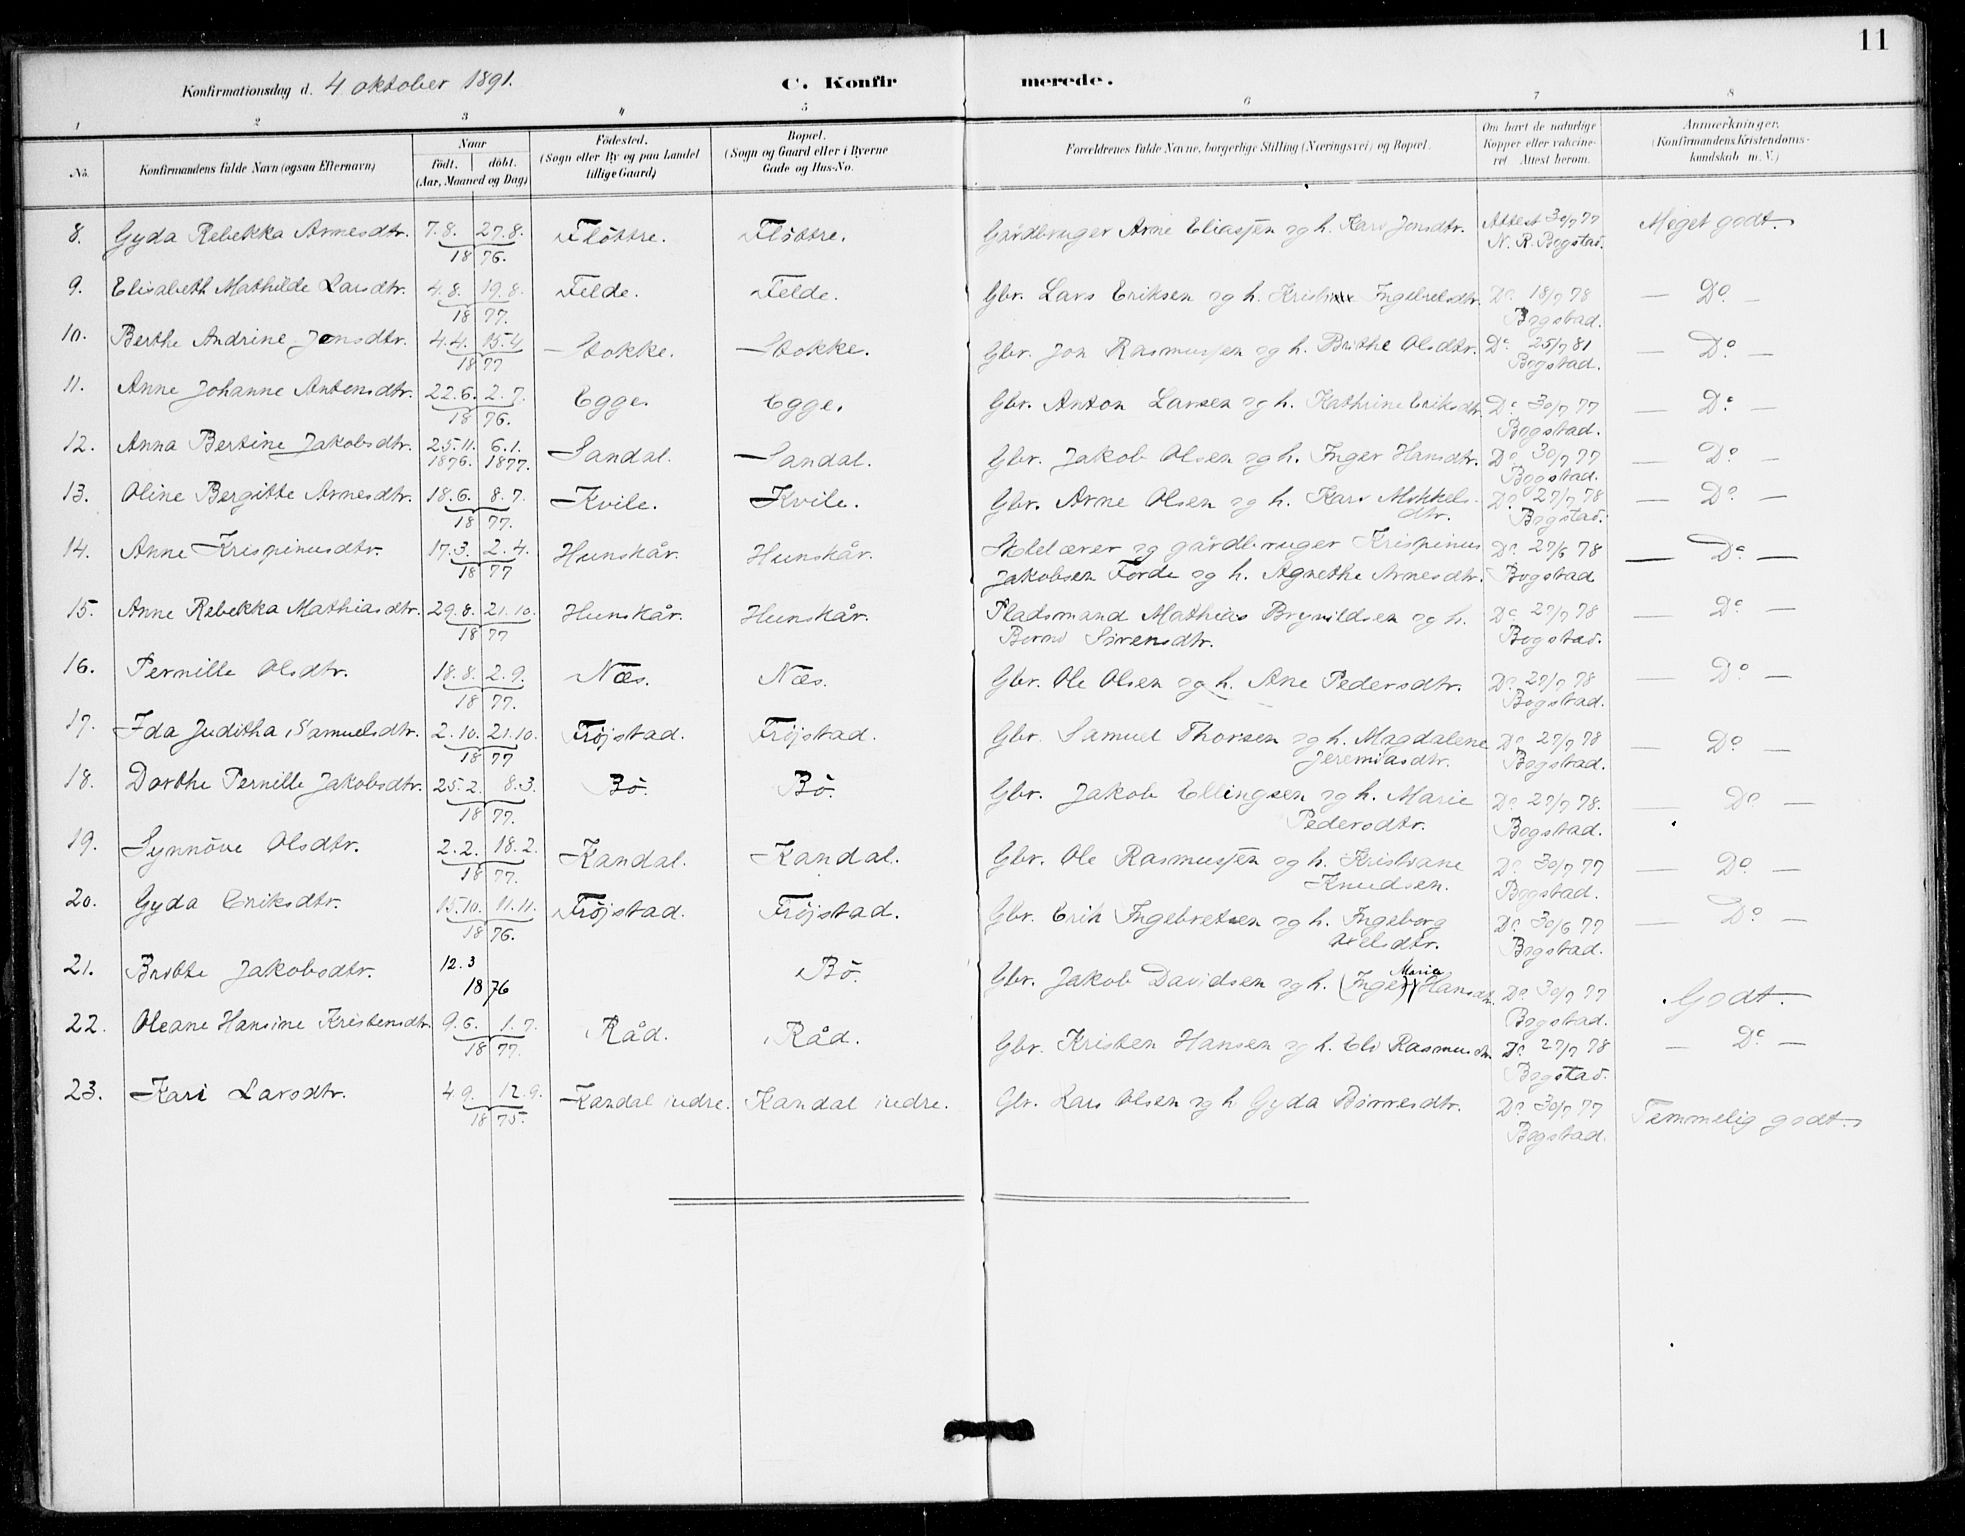 11
Konfirmationsdag d. 4 oktober 1891. C. Konfir merede.
1 2 3 4 5 6 7 8
No. Konfirmandens fulde Navn (ogsaa Efternavn) Naar født. døbt. (Aar, Maaned og Dag) Fødested. (Sogn eller By og paa Landet tillige Gaard) Bopæl. (Sogn og Gaard eller i Byerne Gade og Hus-No. Forældrenes fulde Navne, borgerlige Stilling (Næringsvei) og Bopæl. Om havt de naturlige Kopper eller vaksineret. Attest herom. Anmærkninger. (Konfirmandens Kristendomskundskab m. V.)
8. Gyda Rebekka Arnesdtr. 7.8. 27.8. Fløttre. Fløttre. Gårdbruger Arne Eliassen og h. Kari Jonsdtr. Attest 30/7 77 Meget godt.
1876. N. R. Bogstad.
9. Elisabeth Mathilde Larsdtr. 4.8. 19.8. Felde. Felde. Gbr. Lars Eriksen og h. Ingebretsdtr. Do 18/7 78 — Do —
1877. Bogstad.
10. Berthe Andrine Jonsdtr. 4.4. 15.4 Stokke. Stokke. Gbr. Jon Rasmussen og h. Brithe Olsdtr. Do 25/7 81 — Do —
1877 Bogstad.
11. Anne Johanne Antonsdtr. 22.6. 2.7. Egge. Egge. Gbr. Anton Larsen og h. Kathrine Eriksdtr. Do 30/7 77 — Do —
1876. Bogstad.
12. Anna Bertine Jakobsdtr. 25.11. 6.1. Sandal. Sandal. Gbr. Jakob Olsen og h. Inger Hansdtr. Do 30/7 77 — Do —
1876. 1877. Bogstad.
13. Oline Bergitte Arnesdtr. 18.6. 8.7. Kvile. Kvile. Gbr. Arne Olsen og h. Kari Mikkels- Do 27/7 78 — Do —
1877. dtr. Bogstad.
14. Anne Krispinusdtr. 17.3. 2.4. Hunskår. Hunskår. Skolelærer og gårdbruger Krispinus Do 27/6 78 — Do —
1877 Jakobsen Førde og h. Agnethe Arnesdtr. Bogstad
15. Anne Rebekka Mathiasdtr. 29.8. 21.10. Hunskår. Hunskår. Pladsmand Mathias Brynildsen og h. Do 27/7 78 — Do —
1877 Sørensdtr. Bogstad.
16. Pernille Olsdtr. 18.8. 2.9. Næs. Næs. Gbr. Ole Olsen og h. Ane Pedersdtr. Do 27/7 78 — Do —
1877. Bogstad.
17. Ida Juditha Samuelsdtr. 2.10. 21.10. Frøjstad. Frøjstad. Gbr. Samuel Thorsen og h. Magdalene Do 27/7 78 — Do —
1877 Jeremiasdtr. Bogstad.
18. Dorthe Pernille Jakobsdtr. 25.2. 8.3. Bø. Bø. Gbr. Jakob Ellingsen og h. Marie Do 27/7 78. — Do —
1877. Pedersdtr. Bogstad.
19. Synnøve Olsdtr. 2.2. 18.2. Kandal. Kandal. Gbr. Ole Rasmussen og h. Kristiane Do 30/7 77 — Do —
1877. Knudsen. Bogstad.
20. Gyda Eriksdtr. 15.10. 11.11. Frøjstad. Frøjstad. Gbr. Erik Ingebretsen og h. Ingeborg Do 30/6 77 — Do —
1876. Bogstad.
21. Britte Jakobsdtr. 12.3 Bø. Gbr. Jakob Davidsen og h. (Inger) Marie Hansdtr. Do 30/7 77 Godt.
1876 Bogstad.
22. Oleane Hansine Kristensdtr. 9.6. 1.7. Råd. Råd. Gbr. Kristen Hansen og h. Eli Rasmusdtr. Do 27/7 78 — Do —
1877. Bogstad.
23. Kari Larsdtr. 4.9. 12.9. Kandal indre. Kandal indre. Gbr. Lars Olsen og h Gyda Børresdtr. Do 30/7 77 Temmelig godt.
1875. Bogstad.